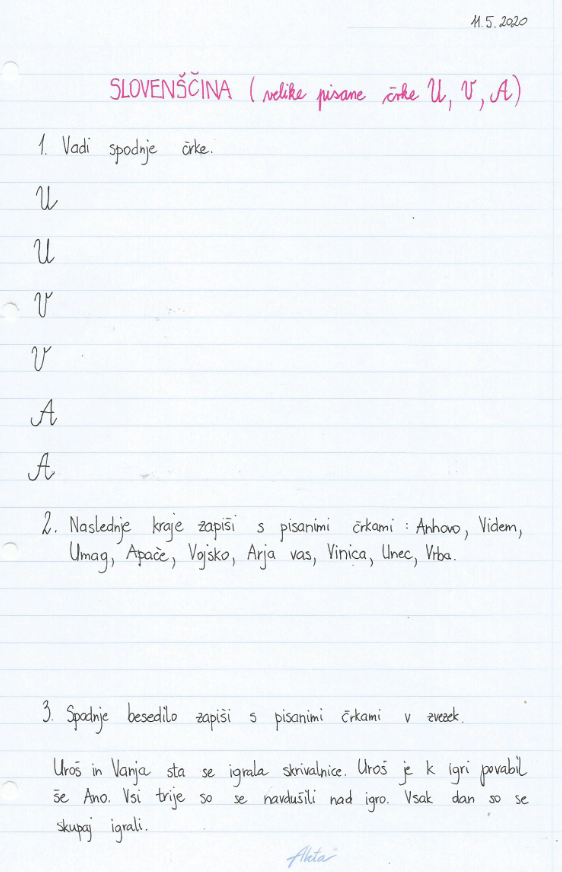 11.5.2020
SLOVENŠČINA (velike pisane črke U, V, A)
1. Vadi spodnje črke.
U
U
V
V
A
A
2. Naslednje kraje zapiši s pisanimi črkami : Anhovo, Videm,
Umag, Apače, Vojsko, Arja vas, Vinica, Unec, Vrba.
3. Spodnje besedilo zapiši s pisanimi črkami v zvezek.
Uroš in Vanja sta se igrala skrivalnice. Uroš je k igri povabil
še Ano. Vsi trije so se navdušili nad igro. Vsak dan so se
skupaj igrali.
Akta